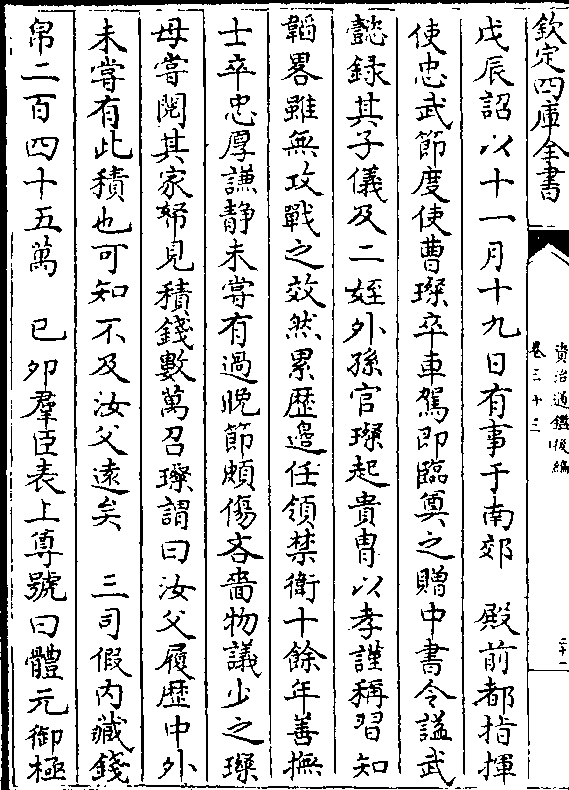 欽定四庫全書
資治通鑑後編
卷三十三
二十一
戊辰詔以十一月十九日有事于南郊　殿前都指揮
使忠武節度使曹璨卒車駕即臨奠之贈中書令諡武
懿録其子儀及二姪外孫官璨起貴胄以孝謹稱習知
韜畧雖無攻戰之效然累歴邉任領禁衛十餘年善撫
士卒忠厚謙静未嘗有過晩節頗傷吝嗇物議少之璨
母嘗閱其家帑見積錢數萬召璨謂曰汝父履歴中外
未嘗有此積也可知不及汝父遠矣　三司假内藏錢
帛二百四十五萬　己夘羣臣表上尊號曰體元御極